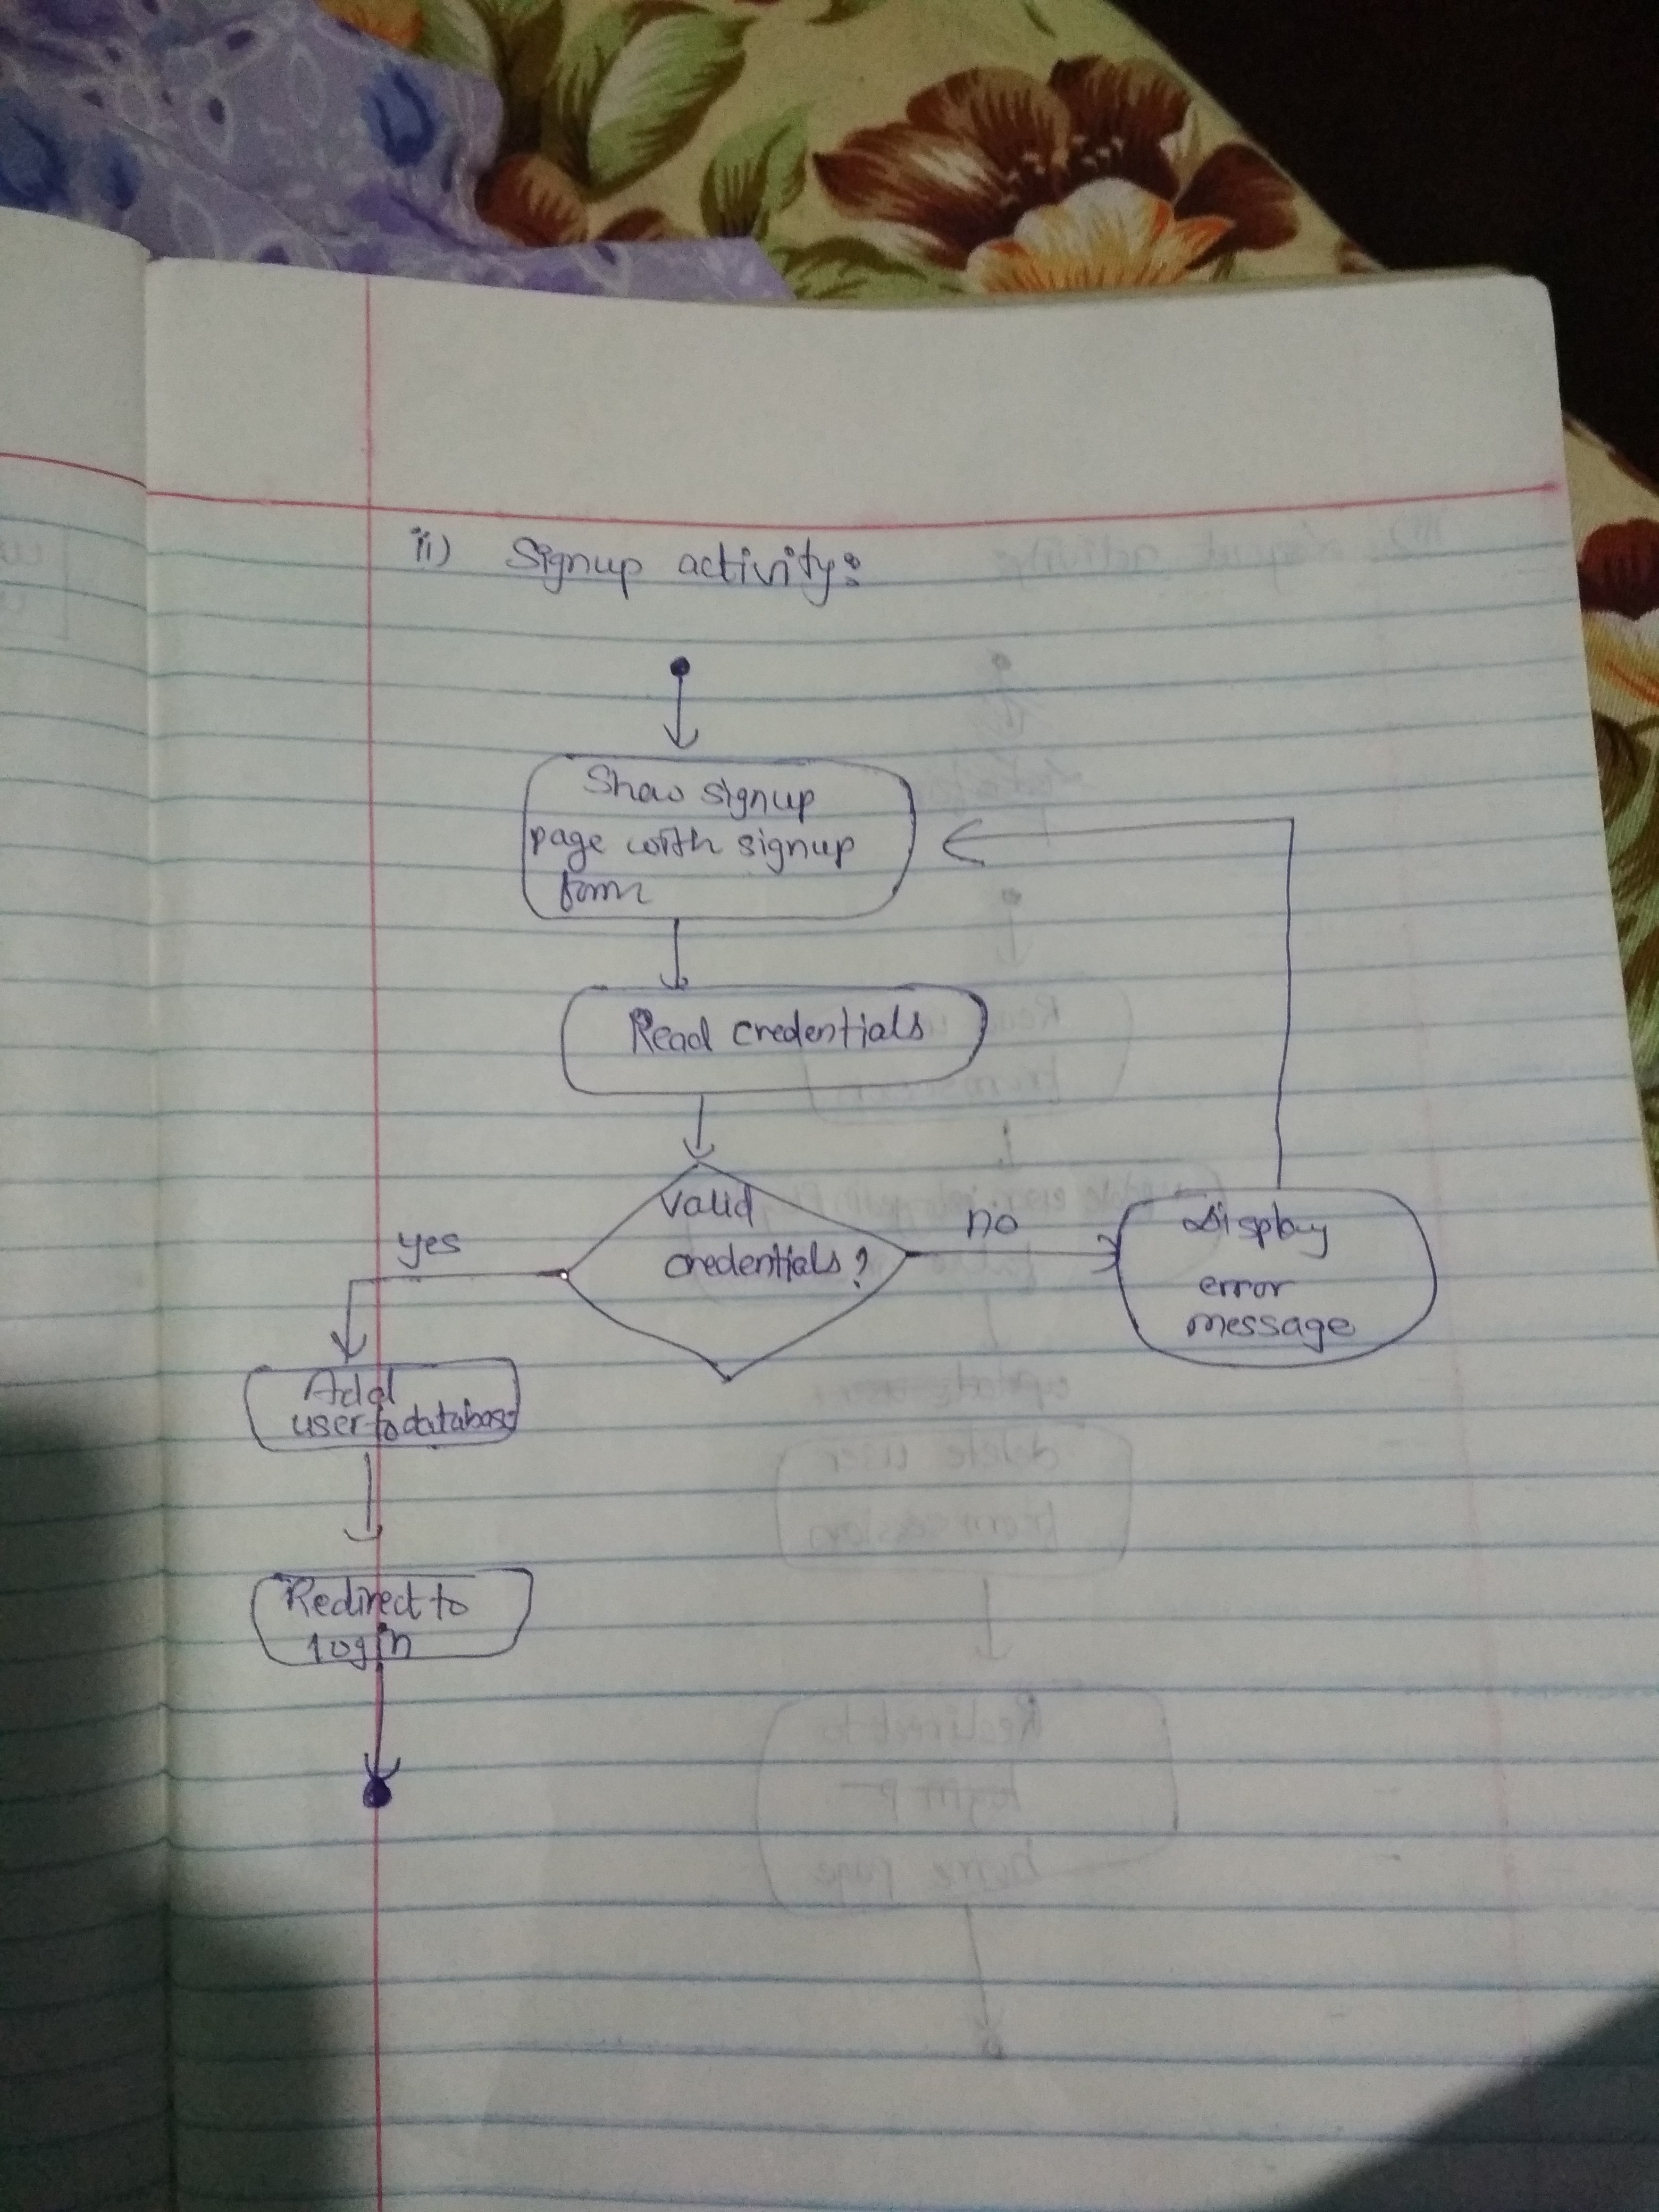 ii) Signup activity:
Show signup
page with signup
form
Read credentials
valid
credentials?
yes
no
Display
error
message
Add
user to database
Redirect to
login